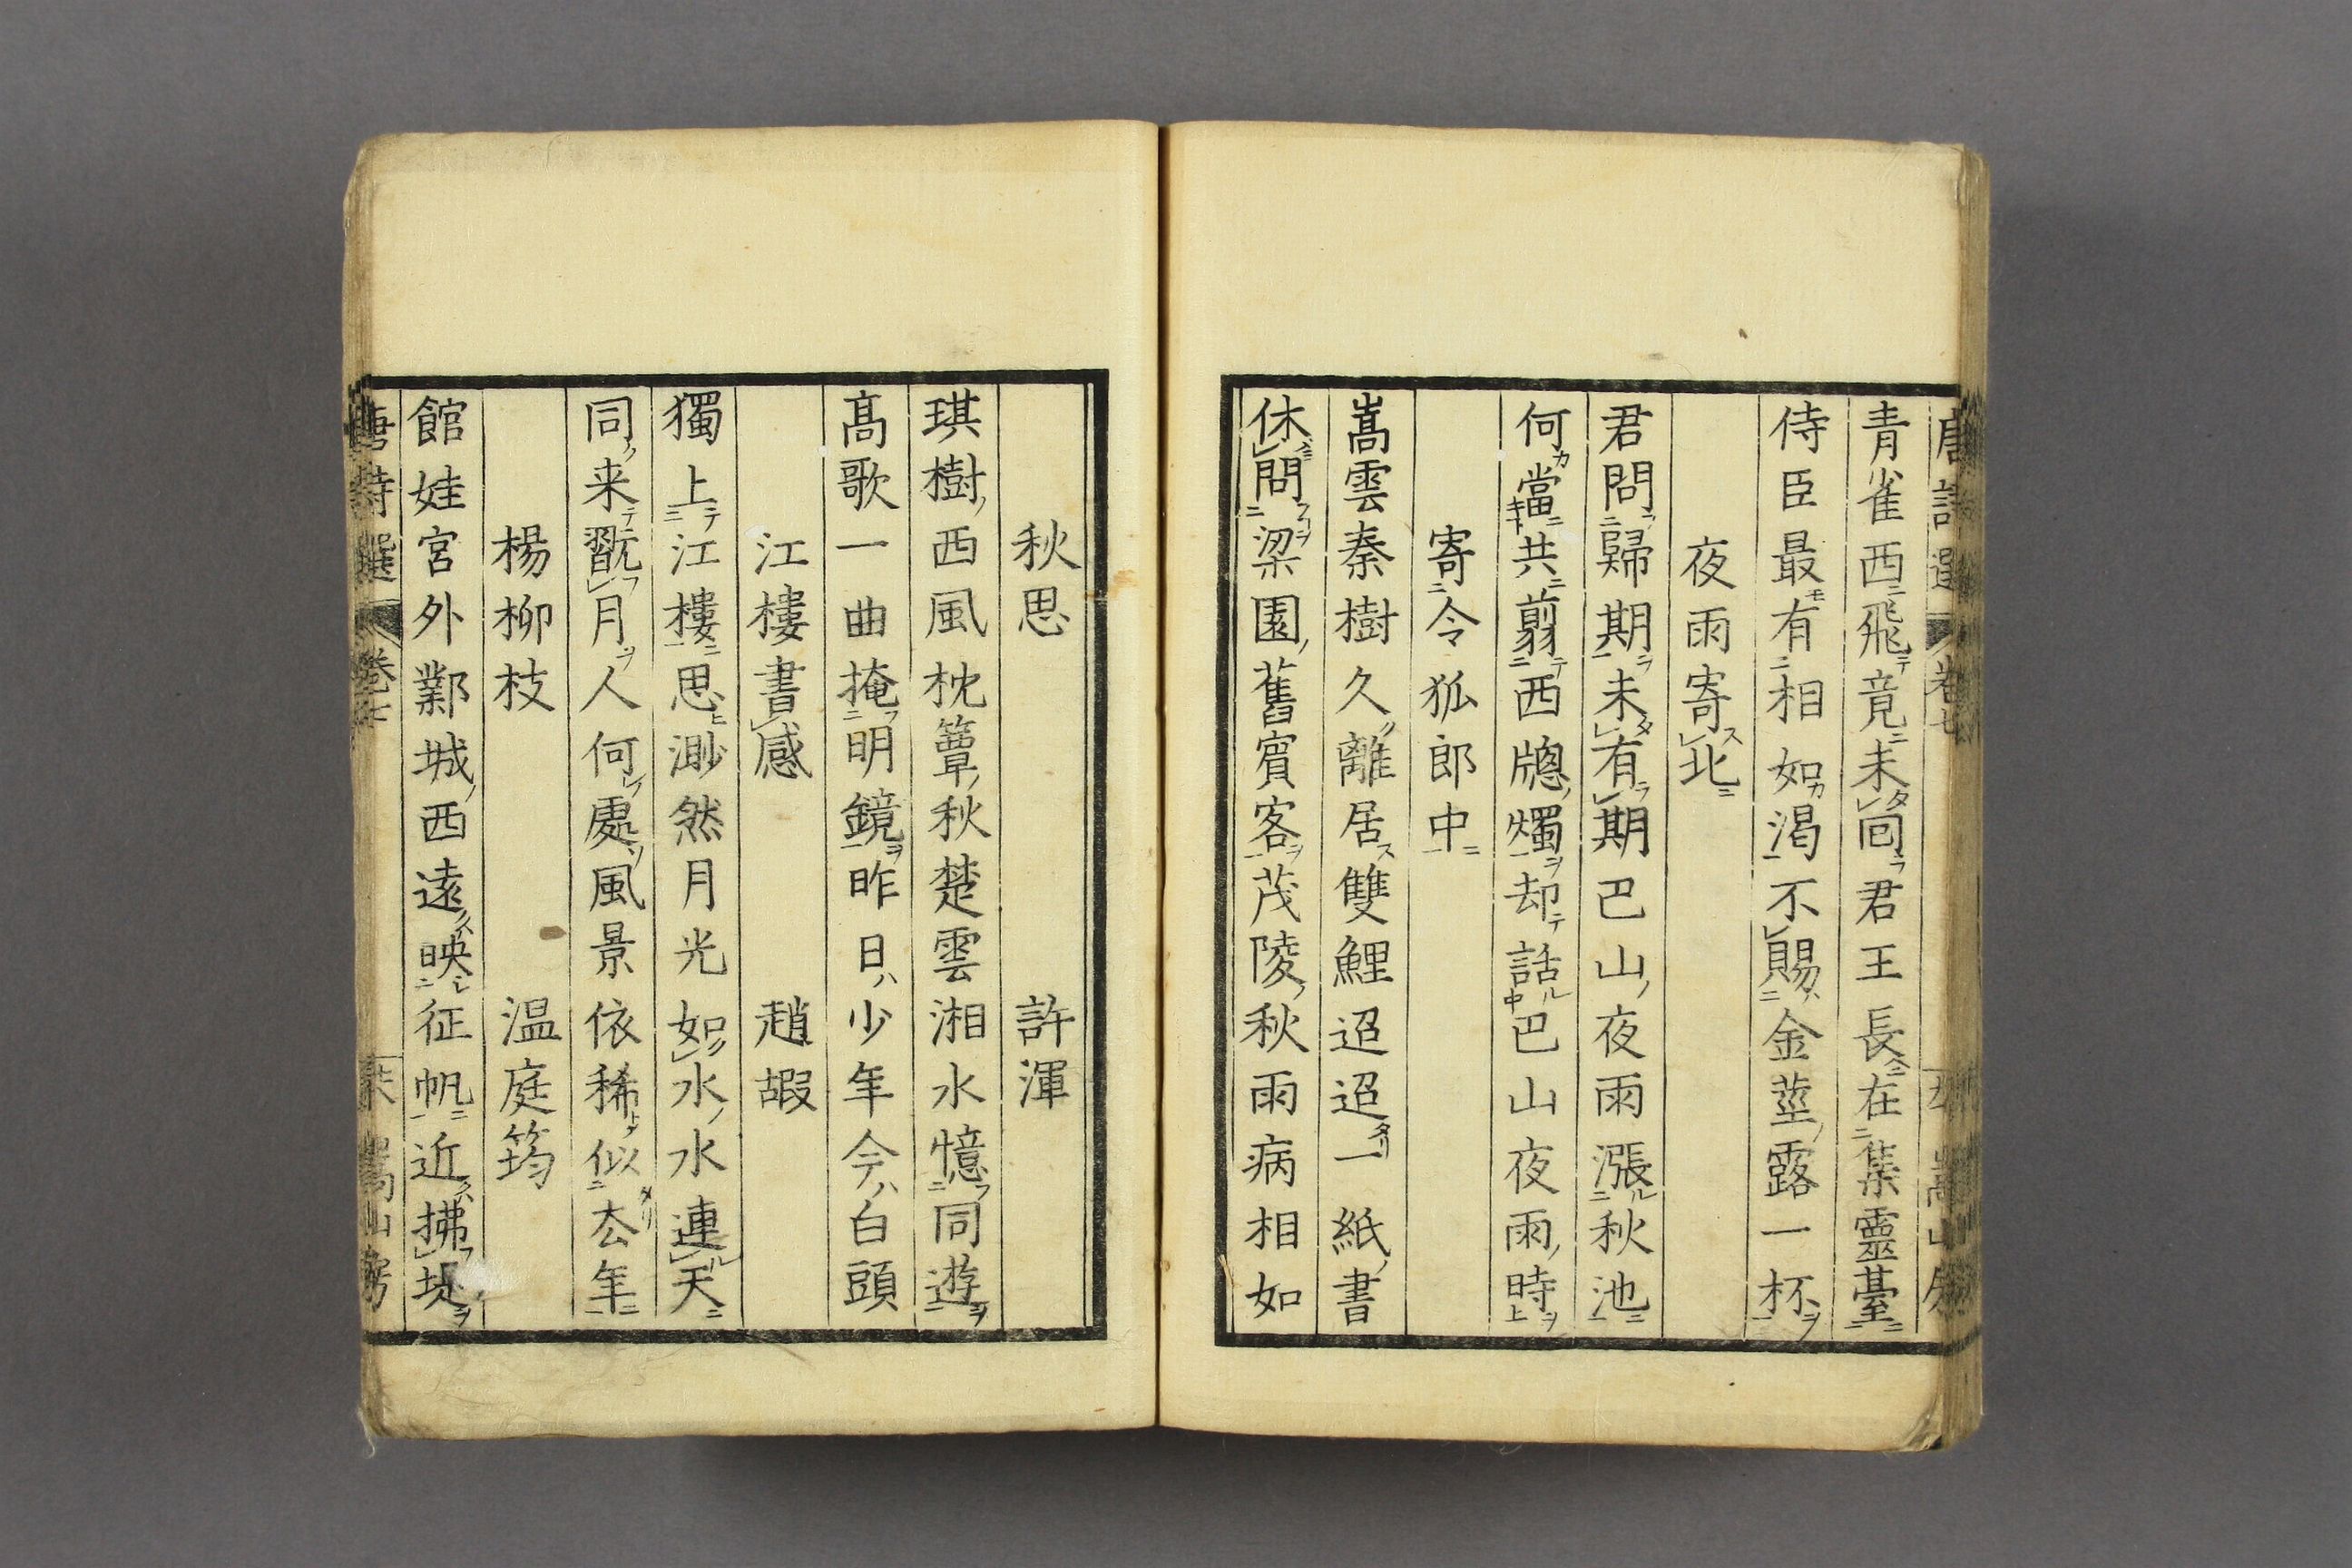 唐詩選 卷七 嵩山房
青雀西飛竟未囘君王長在集靈臺
侍臣最有相如渴不賜金莖露一杯
夜雨寄北
君問歸期未有期巴山夜雨漲秋池
何當共翦西牕燭却話巴山夜雨時
寄令狐郎中
嵩雲秦樹久離居雙鯉迢迢一紙書
休問梁園舊賓客茂陵秋雨病相如
秋思 許渾
琪樹西風枕簟秋楚雲湘水憶同遊
髙歌一曲掩明鏡昨日少年今白頭
江樓書感 趙嘏
獨上江樓思渺然月光如水水連天
同来翫月人何處風景依稀似去年
楊柳枝 温庭筠
館娃宮外鄴城西遠映征帆近拂堤
唐詩選 卷七 嵩山房